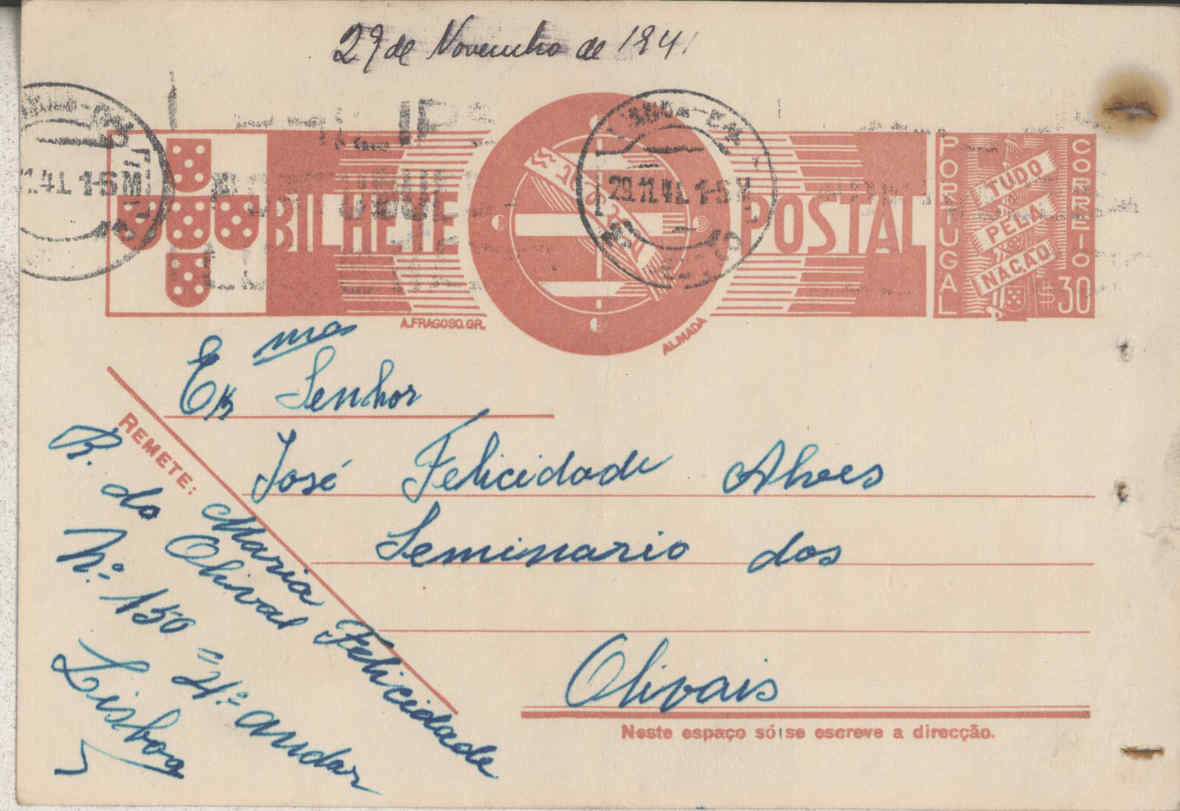 29 de Novembro de 1941
29.11.41. 1-5 M
BILHETE
POSTAL
PORTUGAL
CORREIO
TUDO
PELA
NAÇÃO
$30
A.FRAGOSO.GR.
ALMADA
Exmo Senhor
José Felicidade Alves
Seminario dos
Olivais
REMETE: Maria Felicidade
R. do Olival
Nº 150 = 4º andar
Lisboa
Neste espaço só se escreve a direcção.